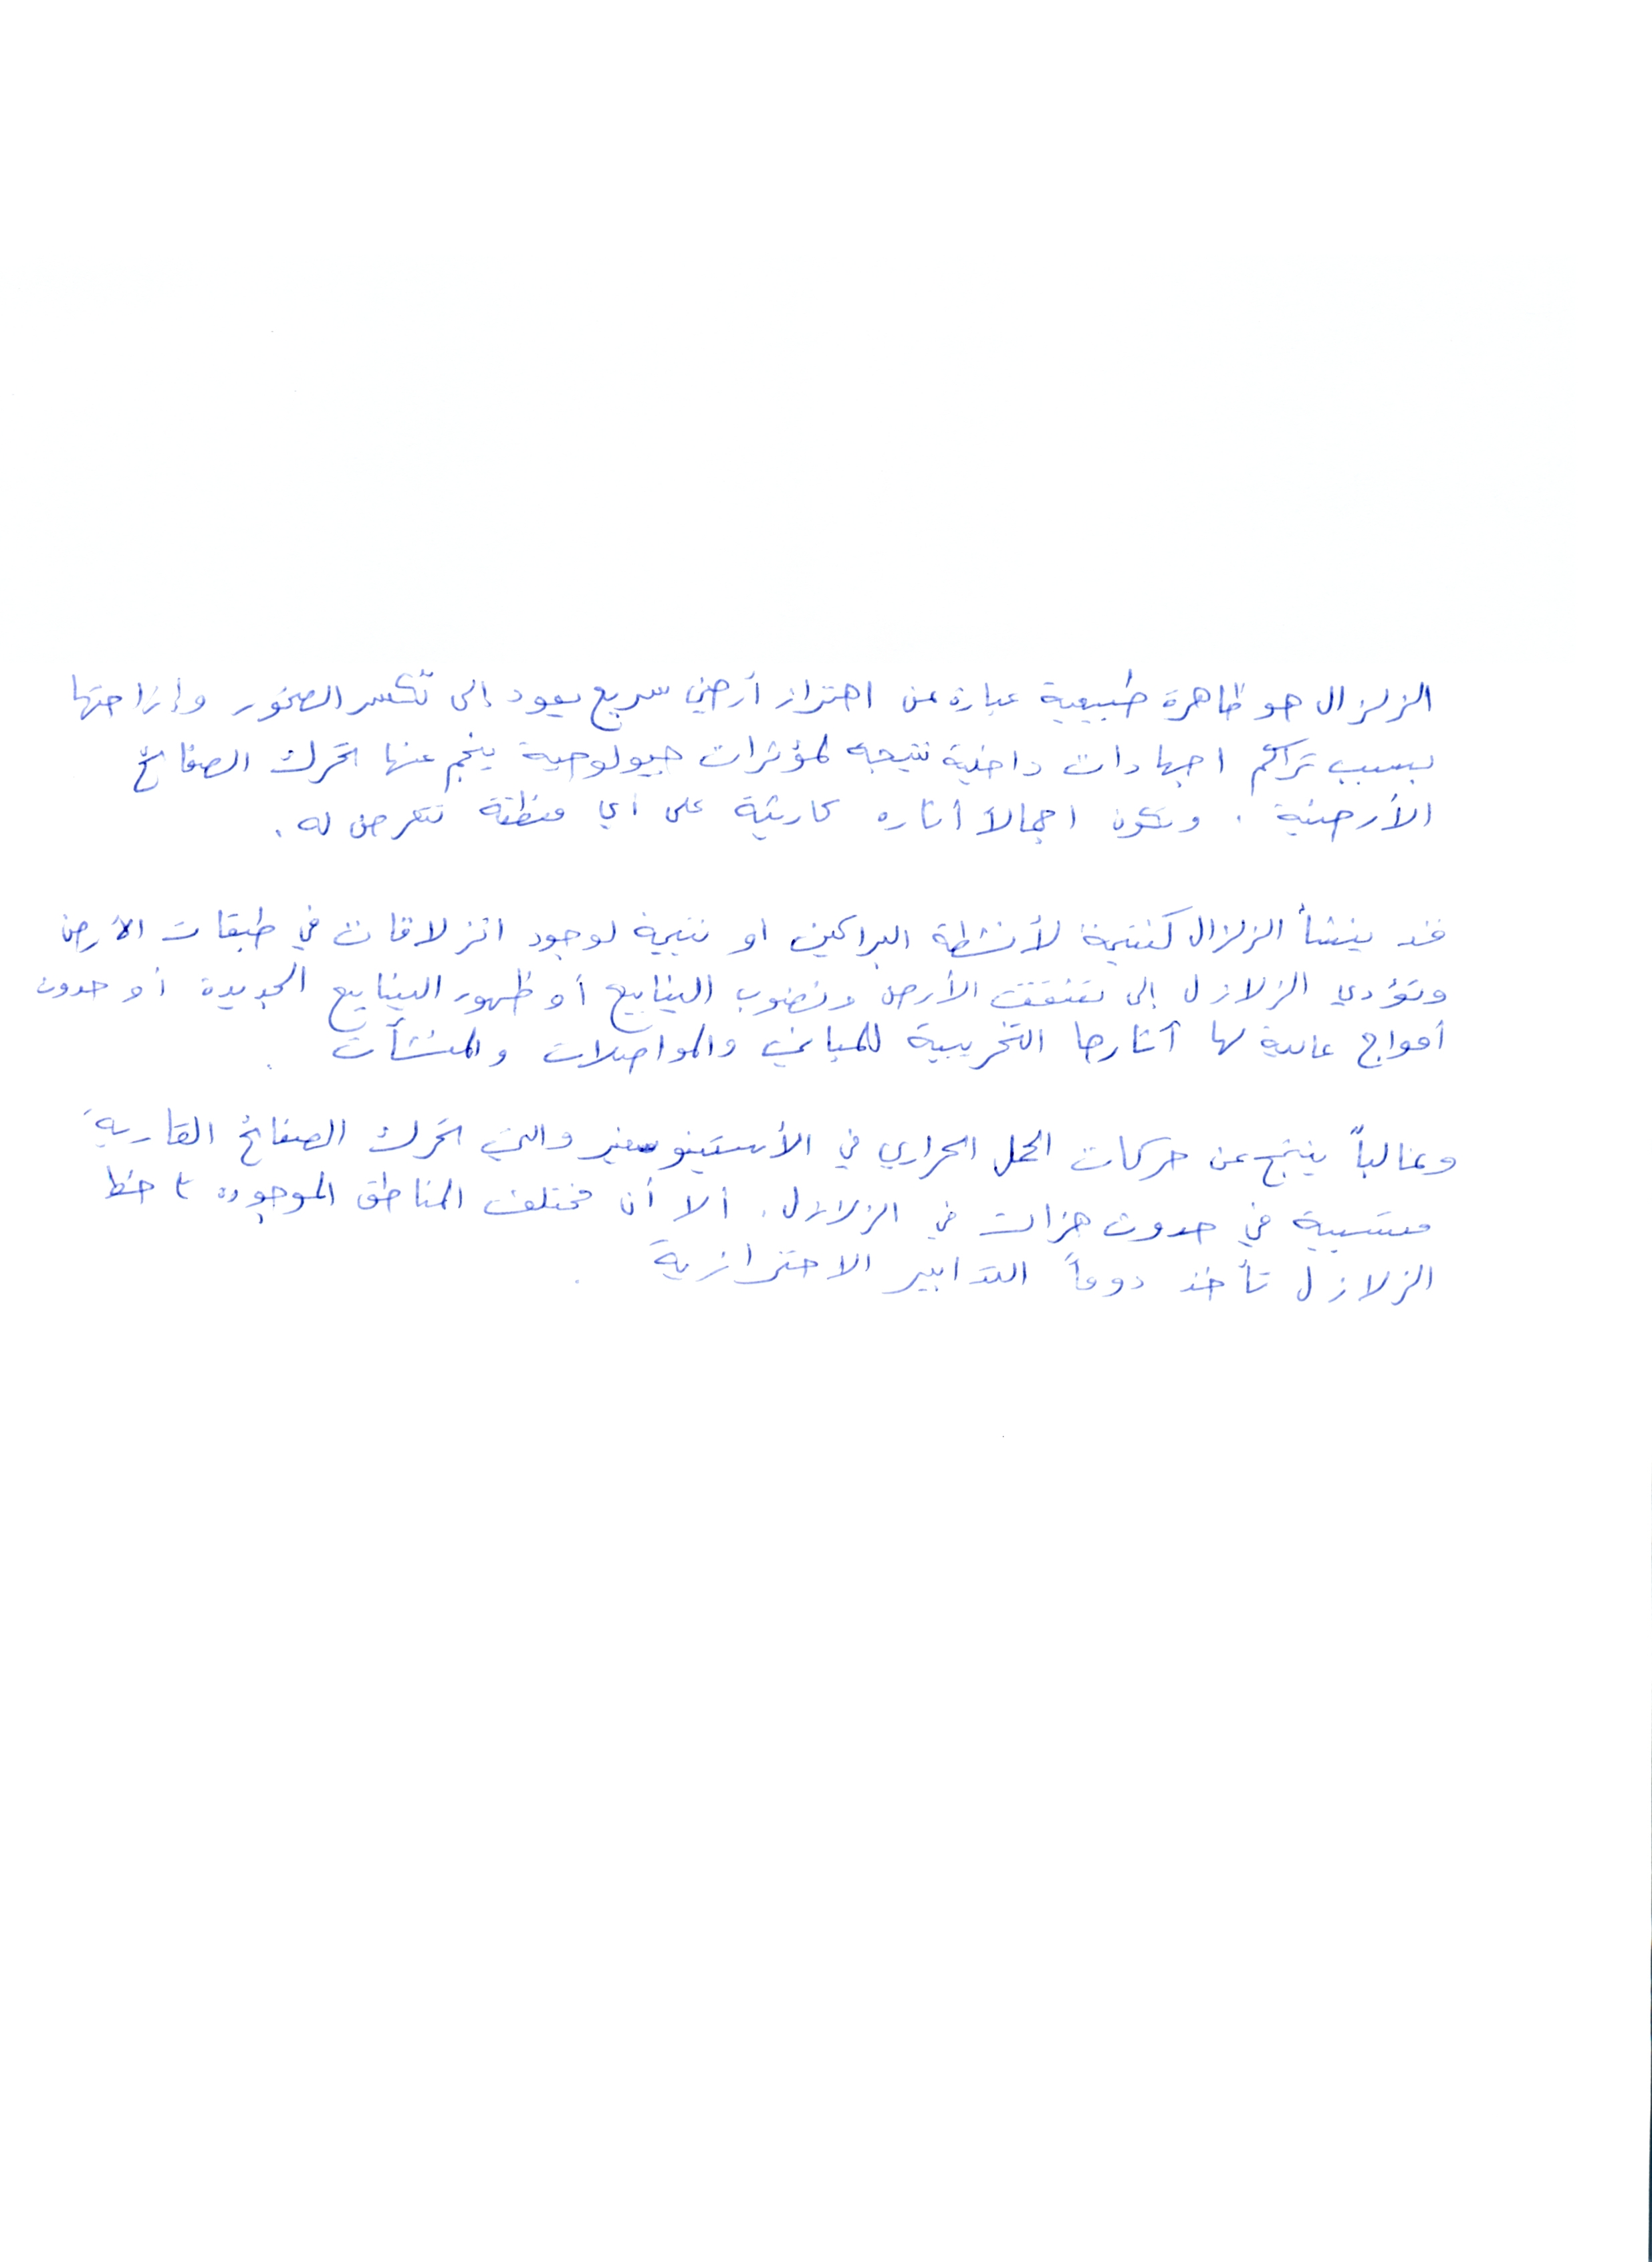 الزلزال هو ظاهرة طبيعية عبارة عن اهتزاز أرضي سريع يعود إلى تكسر الصخور وإزاحتها
بسبب تراكم اجهادات داخلية نتيجه لمؤثرات جيولوجية ينجم عنها تحرك الصفائح
الأرضية . وتكون اجمالاً أثاره كارثية على أي منطقة تتعرض له .
قد ينشأ الزلزال كنتيجة لأنشطة البراكين او نتيجة لوجود انزلاقات في طبقات الأرض
وتؤدي الزلازل إلى تشقق الأرض ونضوب الينابيع أو ظهور الينابيع الجديدة أو حدوث
أمواج عالية لها آثارها التخريبية للمباني والمواصلات والمنشآت .
وغالباً ينتج عن حركات الحمل الحراري في الأستينوسفير والتي تحرك الصفائح القارية
متسببة في حدوث هزات في الزلازل . ألا أن مختلف المناطق الموجودة خط
الزلازل تأخذ دوماً التدابير الاحترازية .